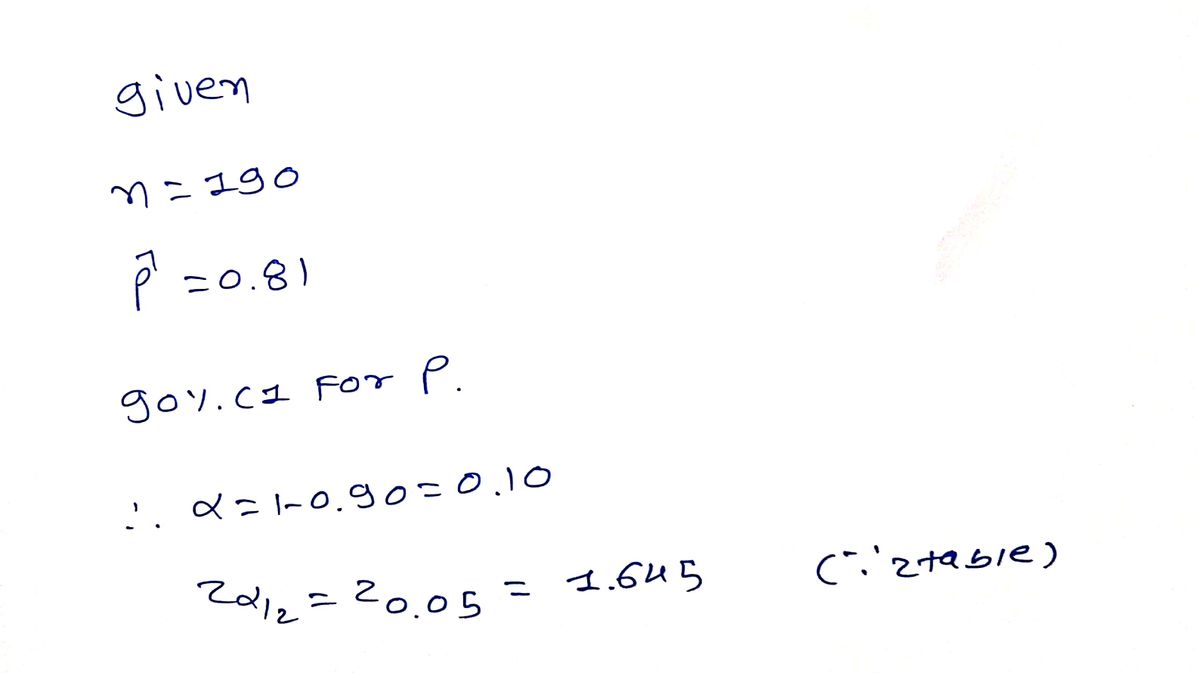 given
n = 190
p̂ = 0.81
90%. CI For P.
∴ α = 1-0.90 = 0.10
Zα/2 = Z0.05 = 1.645 (∵ ztable)